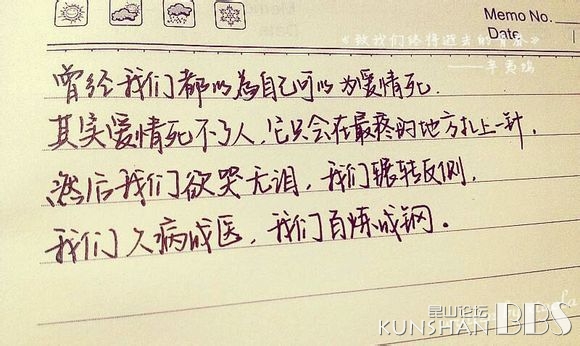 Memo No.
Date
《致我们终将逝去的青春》
——辛夷坞
曾经我们都以为自己可以为爱情死.
其实爱情死不了人,它只会在最疼的地方扎上一针,
然后我们欲哭无泪,我们辗转反侧,
我们久病成医,我们百炼成钢。
昆山论坛
KUNSHAN BBS